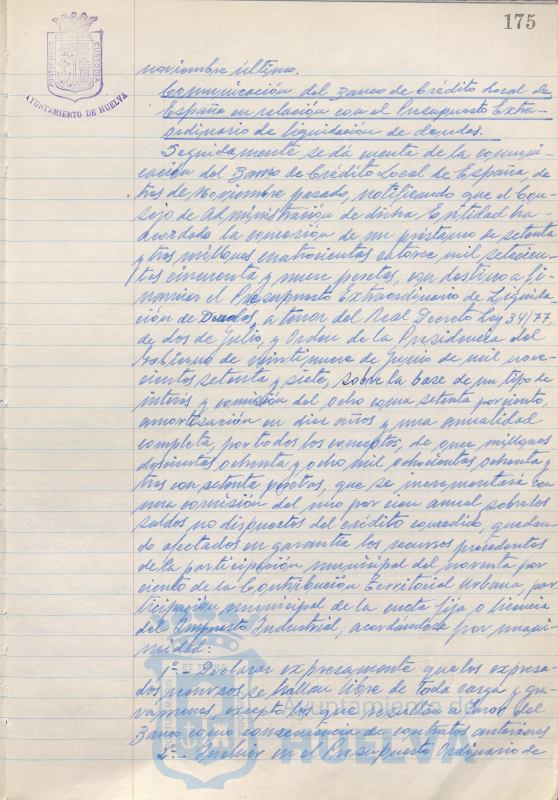 175
AYUNTAMIENTO DE HUELVA
noviembre último.
Comunicación del Banco de Crédito Local de
España en relación con el Presupuesto Extra-
ordinario de liquidación de deudas.
Seguidamente se dá cuenta de la comuni-
cación del Banco de Crédito Local de España, de
tres de Noviembre pasado, notificando que el Con-
sejo de Administración de dicha Entidad ha
acordado la concesión de un préstamo de setenta
y tres millones cuatrocientas catorce mil setecien-
tas cincuenta y nueve pesetas, con destino a fi-
nanciar el Presupuesto Extraordinario de Liquida-
ción de Deudas, a tenor del Real Decreto Ley 34/77
de dos de Julio, y Orden de la Presidencia del
Gobierno de veintinueve de Junio de mil nove-
cientos setenta y siete, sobre la base de un tipo de
interés y comisión del ocho coma setenta por ciento,
amortización en diez años y una anualidad
completa, por todos los conceptos, de once millones
doscientas ochenta y ocho mil ochocientas ochenta y
tres con setenta pesetas, que se incrementará con
una comisión del uno por cien anual sobre los
saldos no dispuestos del crédito concedido, quedan-
do afectados en garantía los recursos procedentes
de la participación municipal del noventa por
ciento de la Contribución Territorial Urbana, par-
ticipación municipal de la cuota fija o licencia
del Impuesto Industrial, acordándose por unani-
midad:
1º.- Declarar expresamente que los expresa-
dos recursos se hallan libre de toda carga y gra-
vamenes excepto los que resultan a favor del
Banco como consecuencia de contratos anteriores
2º.- Incluir en el Presupuesto Ordinario de
Ayuntamiento de
HUELVA